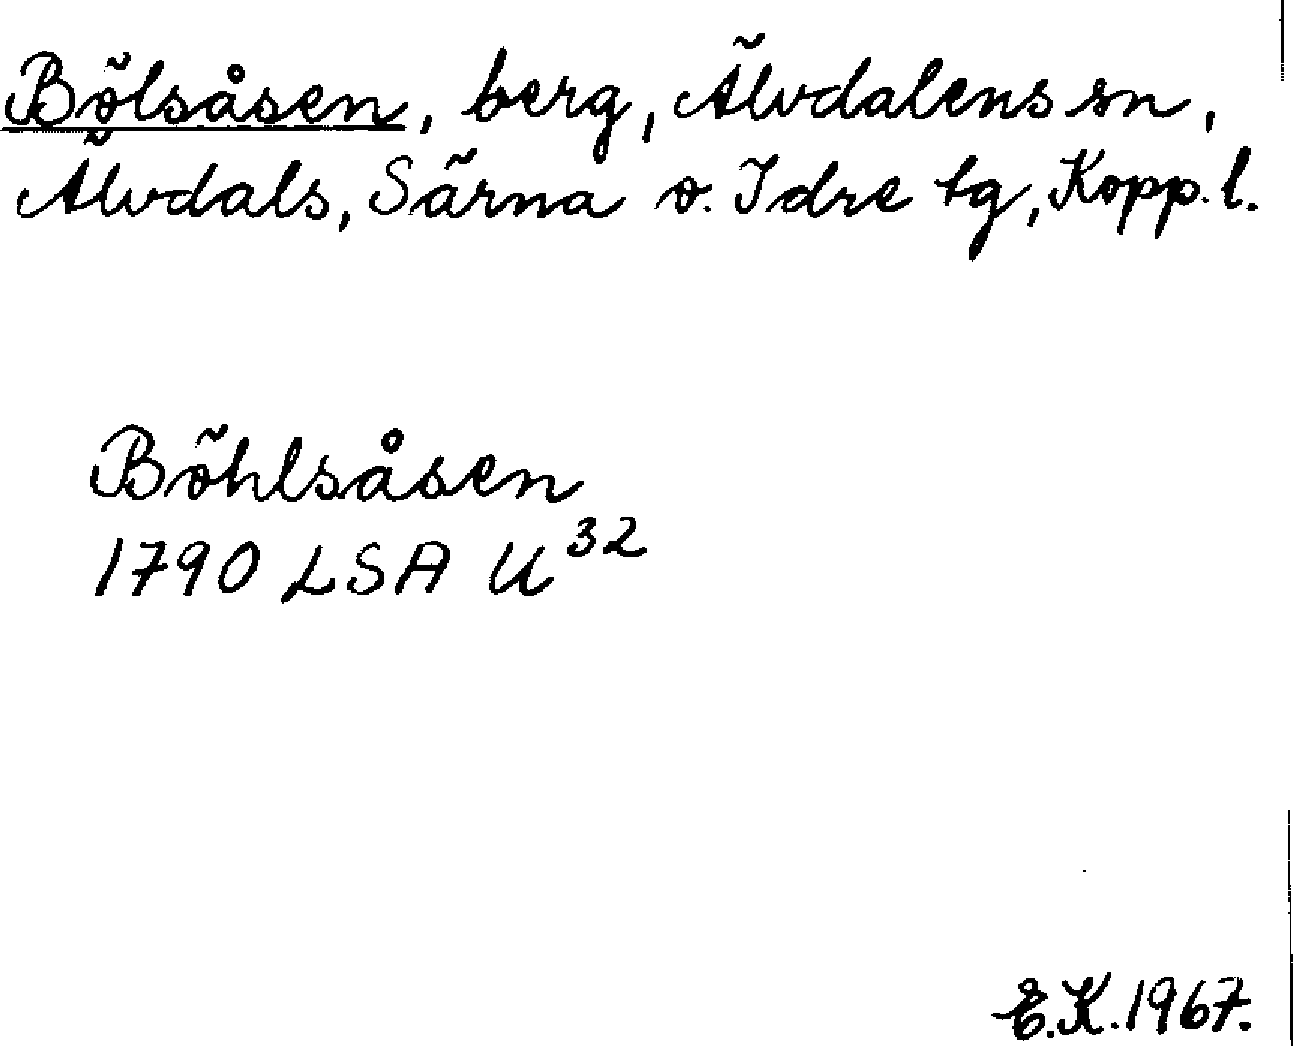 Bölsåsen, berg, Älvdalens sn,
Älvdals, Särna o. Idre tg, Kopp. l.
Böhlsåsen
1790 LSA U³²
E.K. 1967.